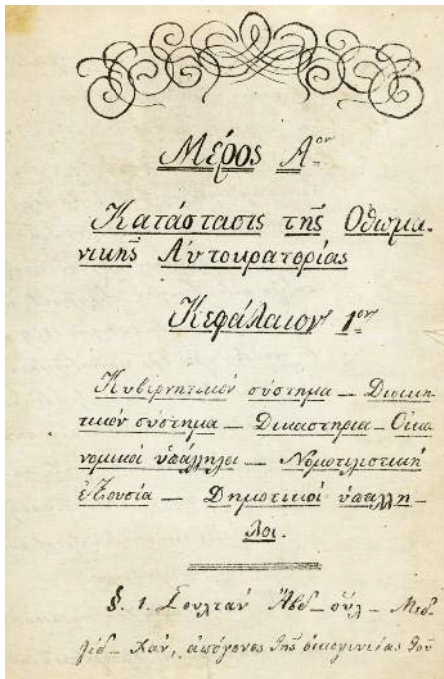 Μέρος Α^ον
Κατάστασις τῆς Ὀθωμα-
νικῆς Αὐτοκρατορίας
Κεφάλαιον 1^ον
Κυβερνητικόν σύστημα — Διοικη-
τικόν σύστημα — Δικαστήρια — Οἰκο-
νομικοί ὑπάλληλοι — Νομοτελεστική
ἐξουσία — Δημοτικοί ὑπάλλη-
λοι.
§. 1. Σουλτάν Ἀβδ-οὔλ-Μεδ-
ζίδ-Χάν, ἀπόγονος τῆς οἰκογενείας τοῦ